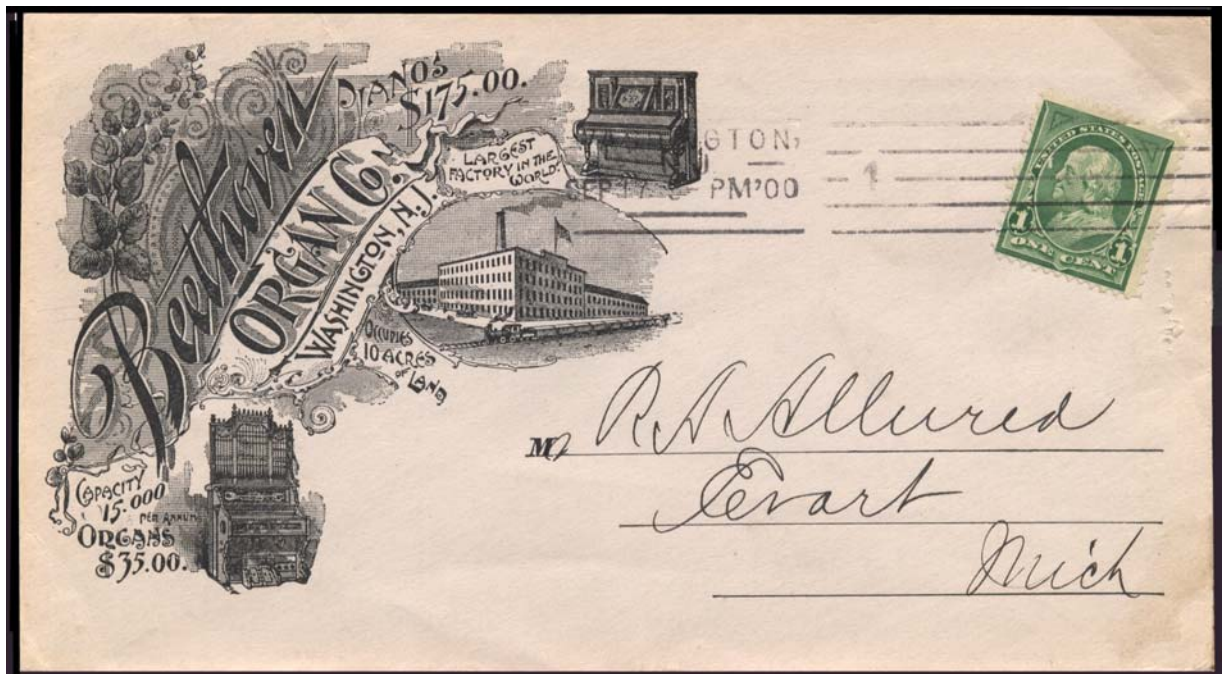 Beethoven
ORGAN CO.
WASHINGTON, N.J.
PIANOS
$175.00.
LARGEST
FACTORY IN THE
WORLD.
OCCUPIES
10 ACRES
OF LAND
CAPACITY
15.000
PER ANNUM
ORGANS
$35.00.
GTON,
SEP 17 PM '00
1
UNITED STATES POSTAGE
1 1
ONE CENT
M
R. A. Allured
Evart
Mich